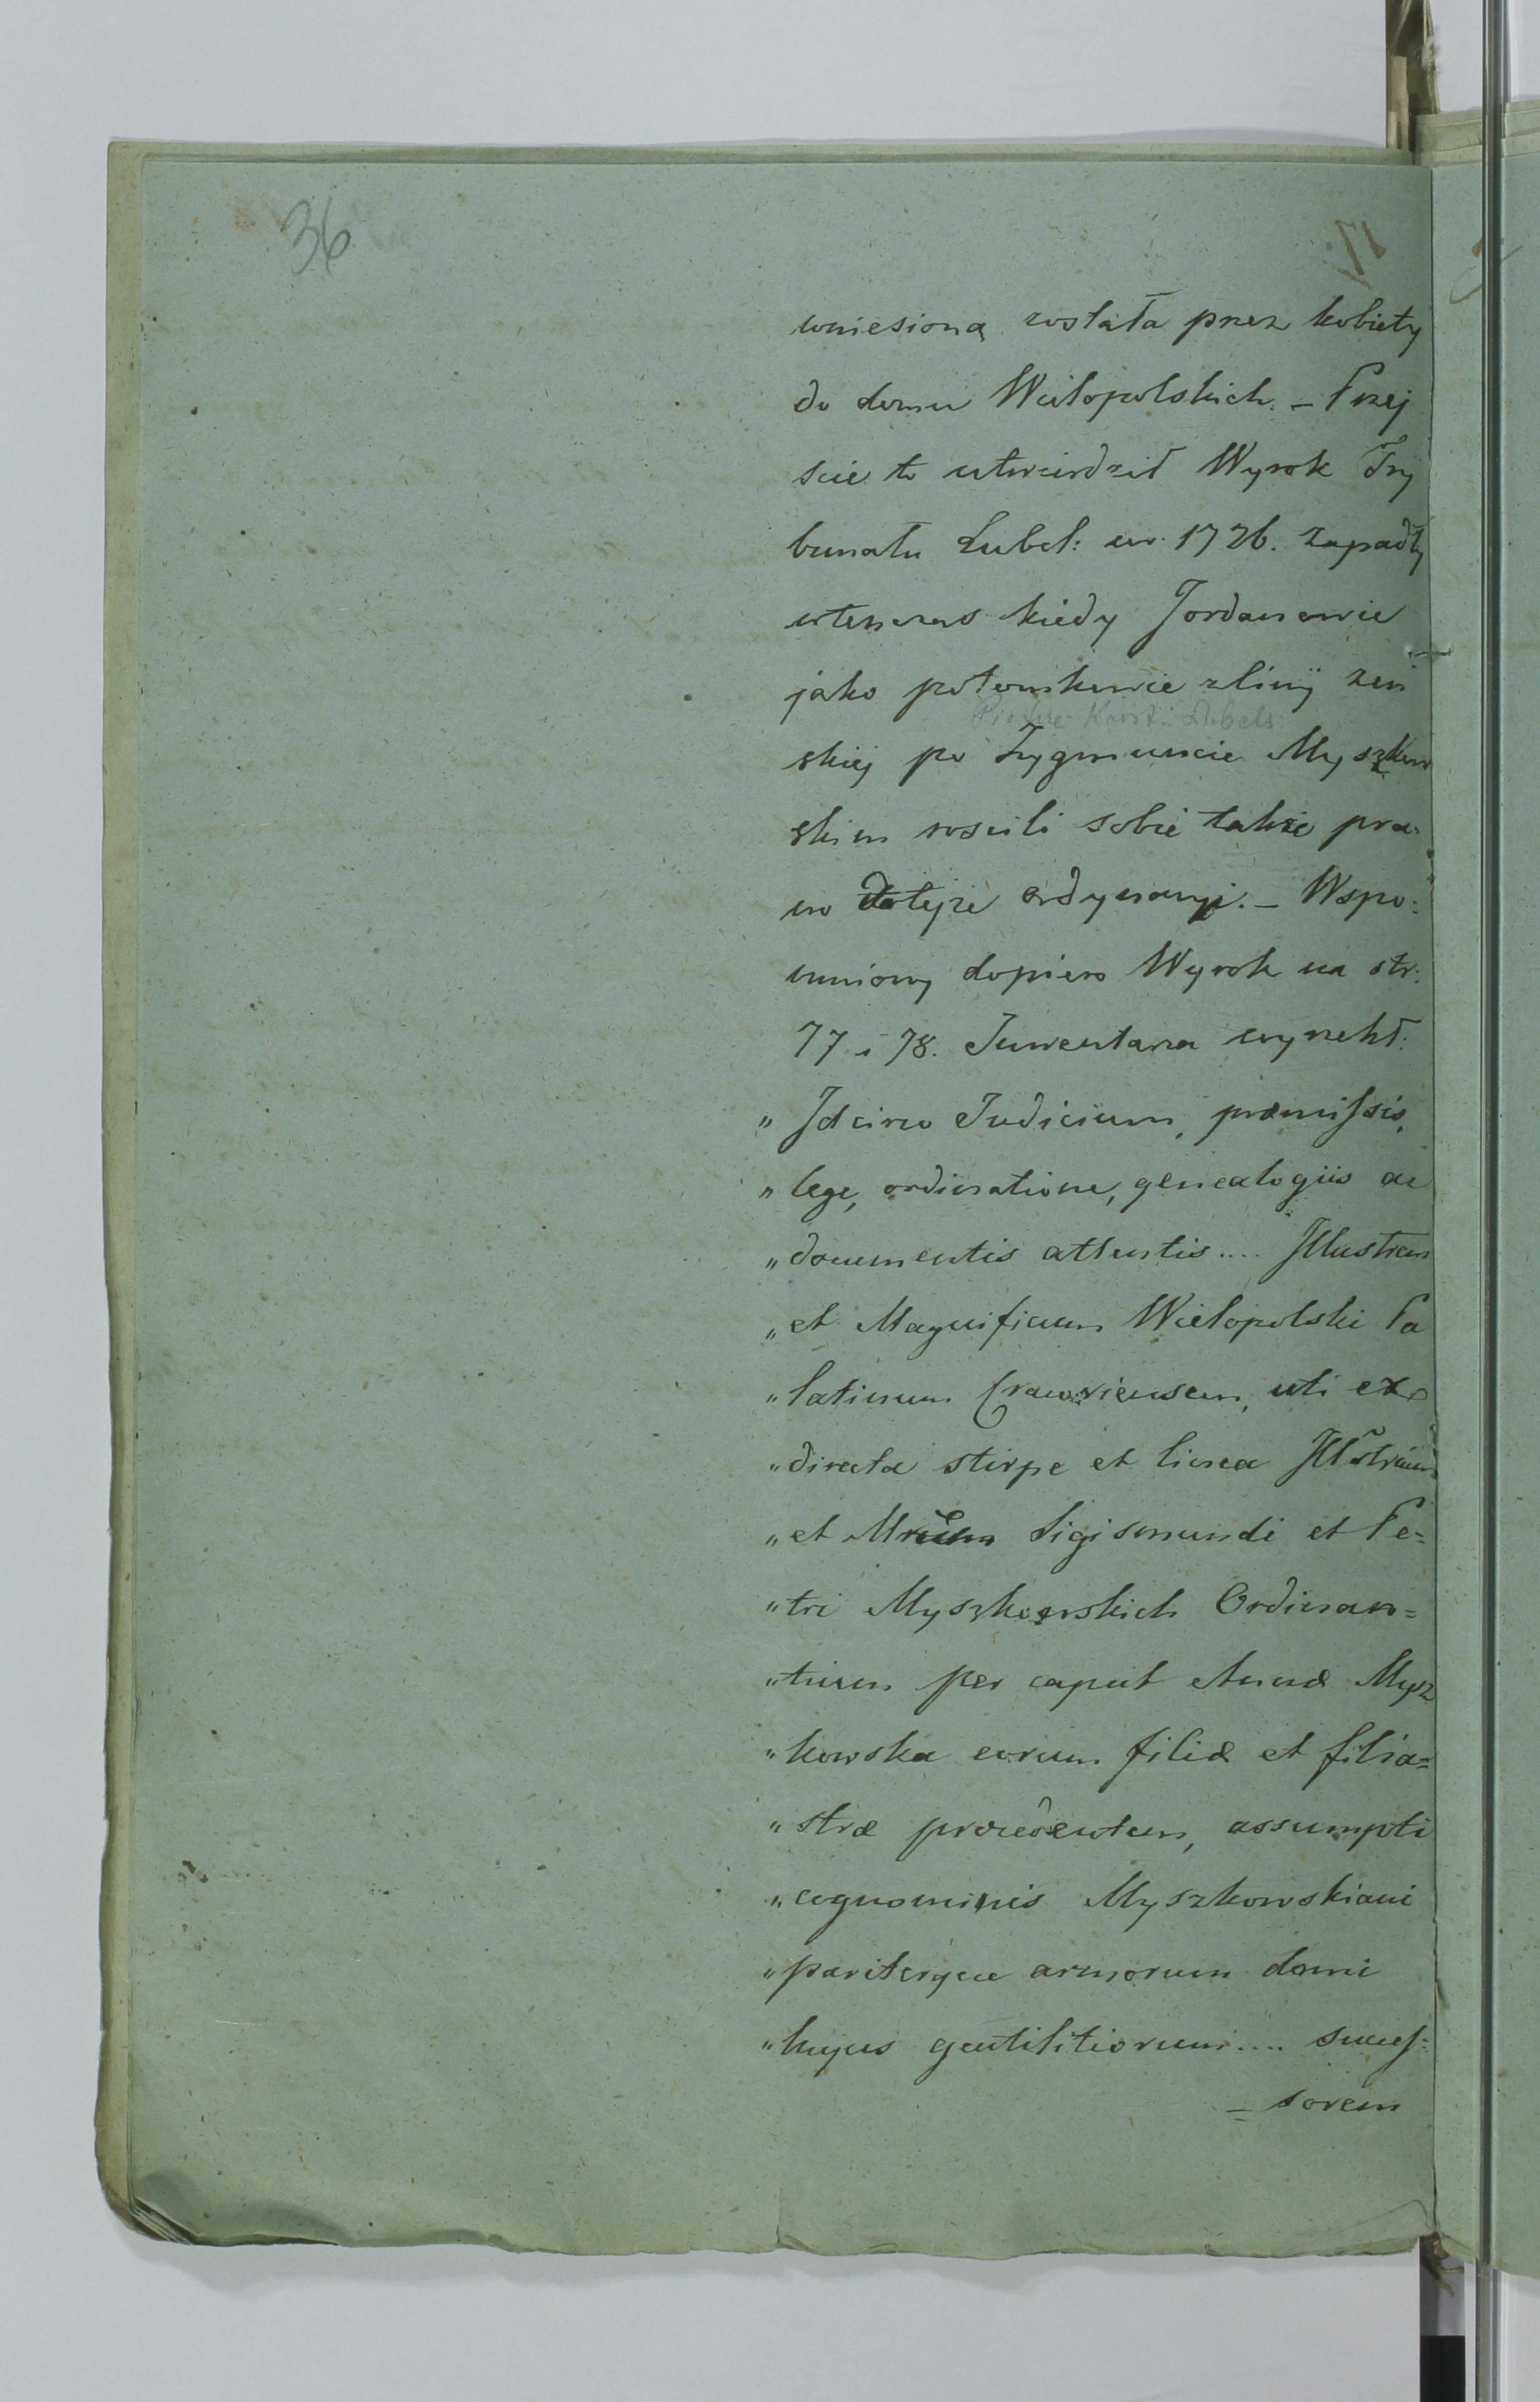 36
wniesioną została przez kobiety
do domu Wielopolskich. – Przej
scie to utwierdził Wyrok Try
bunału Lubel: w r. 1726. zapadły
wtenczas kiedy Jordanowie
jako potomkowie z linij żeń
skiej po Zygmuncie Myszkow
skim rościli sobie także pra-
wo do tejże ordynacyi. – Wspo:
mniony dopiero Wyrok na str.
77 i 78. Inwentarza wyrzekł:
„ Idcirco Judicium, præmissis,
„ lege, ordinatione, genealogiis ac
„ documentis attentis .... Illustrem
„ et Magnificum Wielopolski Pa
„ latinum Cracoviensem, uti ex
„ directa stirpe et linea Illstrium
„ et Mrum Sigismundi et Pe=
„ tri Myszkowskich Ordinan=
„ tium per caput Annæ Mysz
„ kowska eorum filiæ et filia=
„ stræ procedentem, assumpti
„ cognominis Myszkowskiani
„ pariterque armorum domi
„ hujus gentilitiorum .... succes:
= sorem